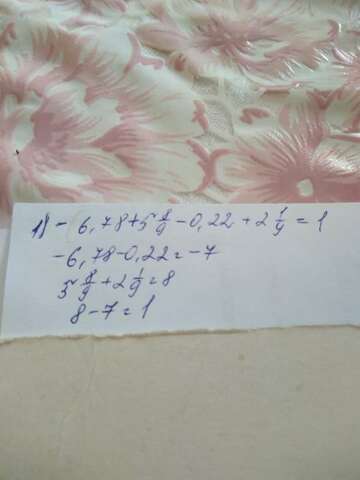 1) - 6,78+5 8/9 - 0,22 + 2 1/9 = 1
-6,78-0,22=-7
5 8/9 + 2 1/9 = 8
8-7=1